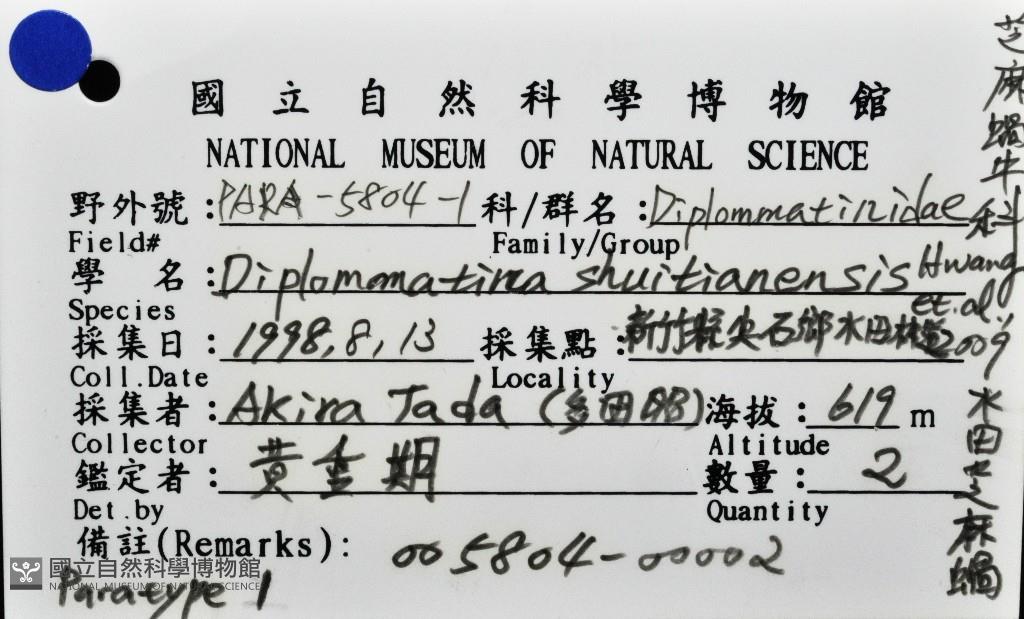 國立自然科學博物館
NATIONAL MUSEUM OF NATURAL SCIENCE
野外號：PARA-5804-1 科/群名：Diplommatinidae
Field# Family/Group
學 名：Diplommatina shuitianensis Hwang et.al., 2009
Species
採集日：1998,8,13 採集點：新竹縣尖石鄉水田林道
Coll.Date Locality
採集者：Akira Tada (多田昭) 海拔：619 m
Collector Altitude
鑑定者：黃重期 數量：2
Det.by Quantity
備註(Remarks)：005804-00002
Paratype 1
芝麻蝸牛科
水田芝麻蝸
國立自然科學博物館
NATIONAL MUSEUM OF NATURAL SCIENCE